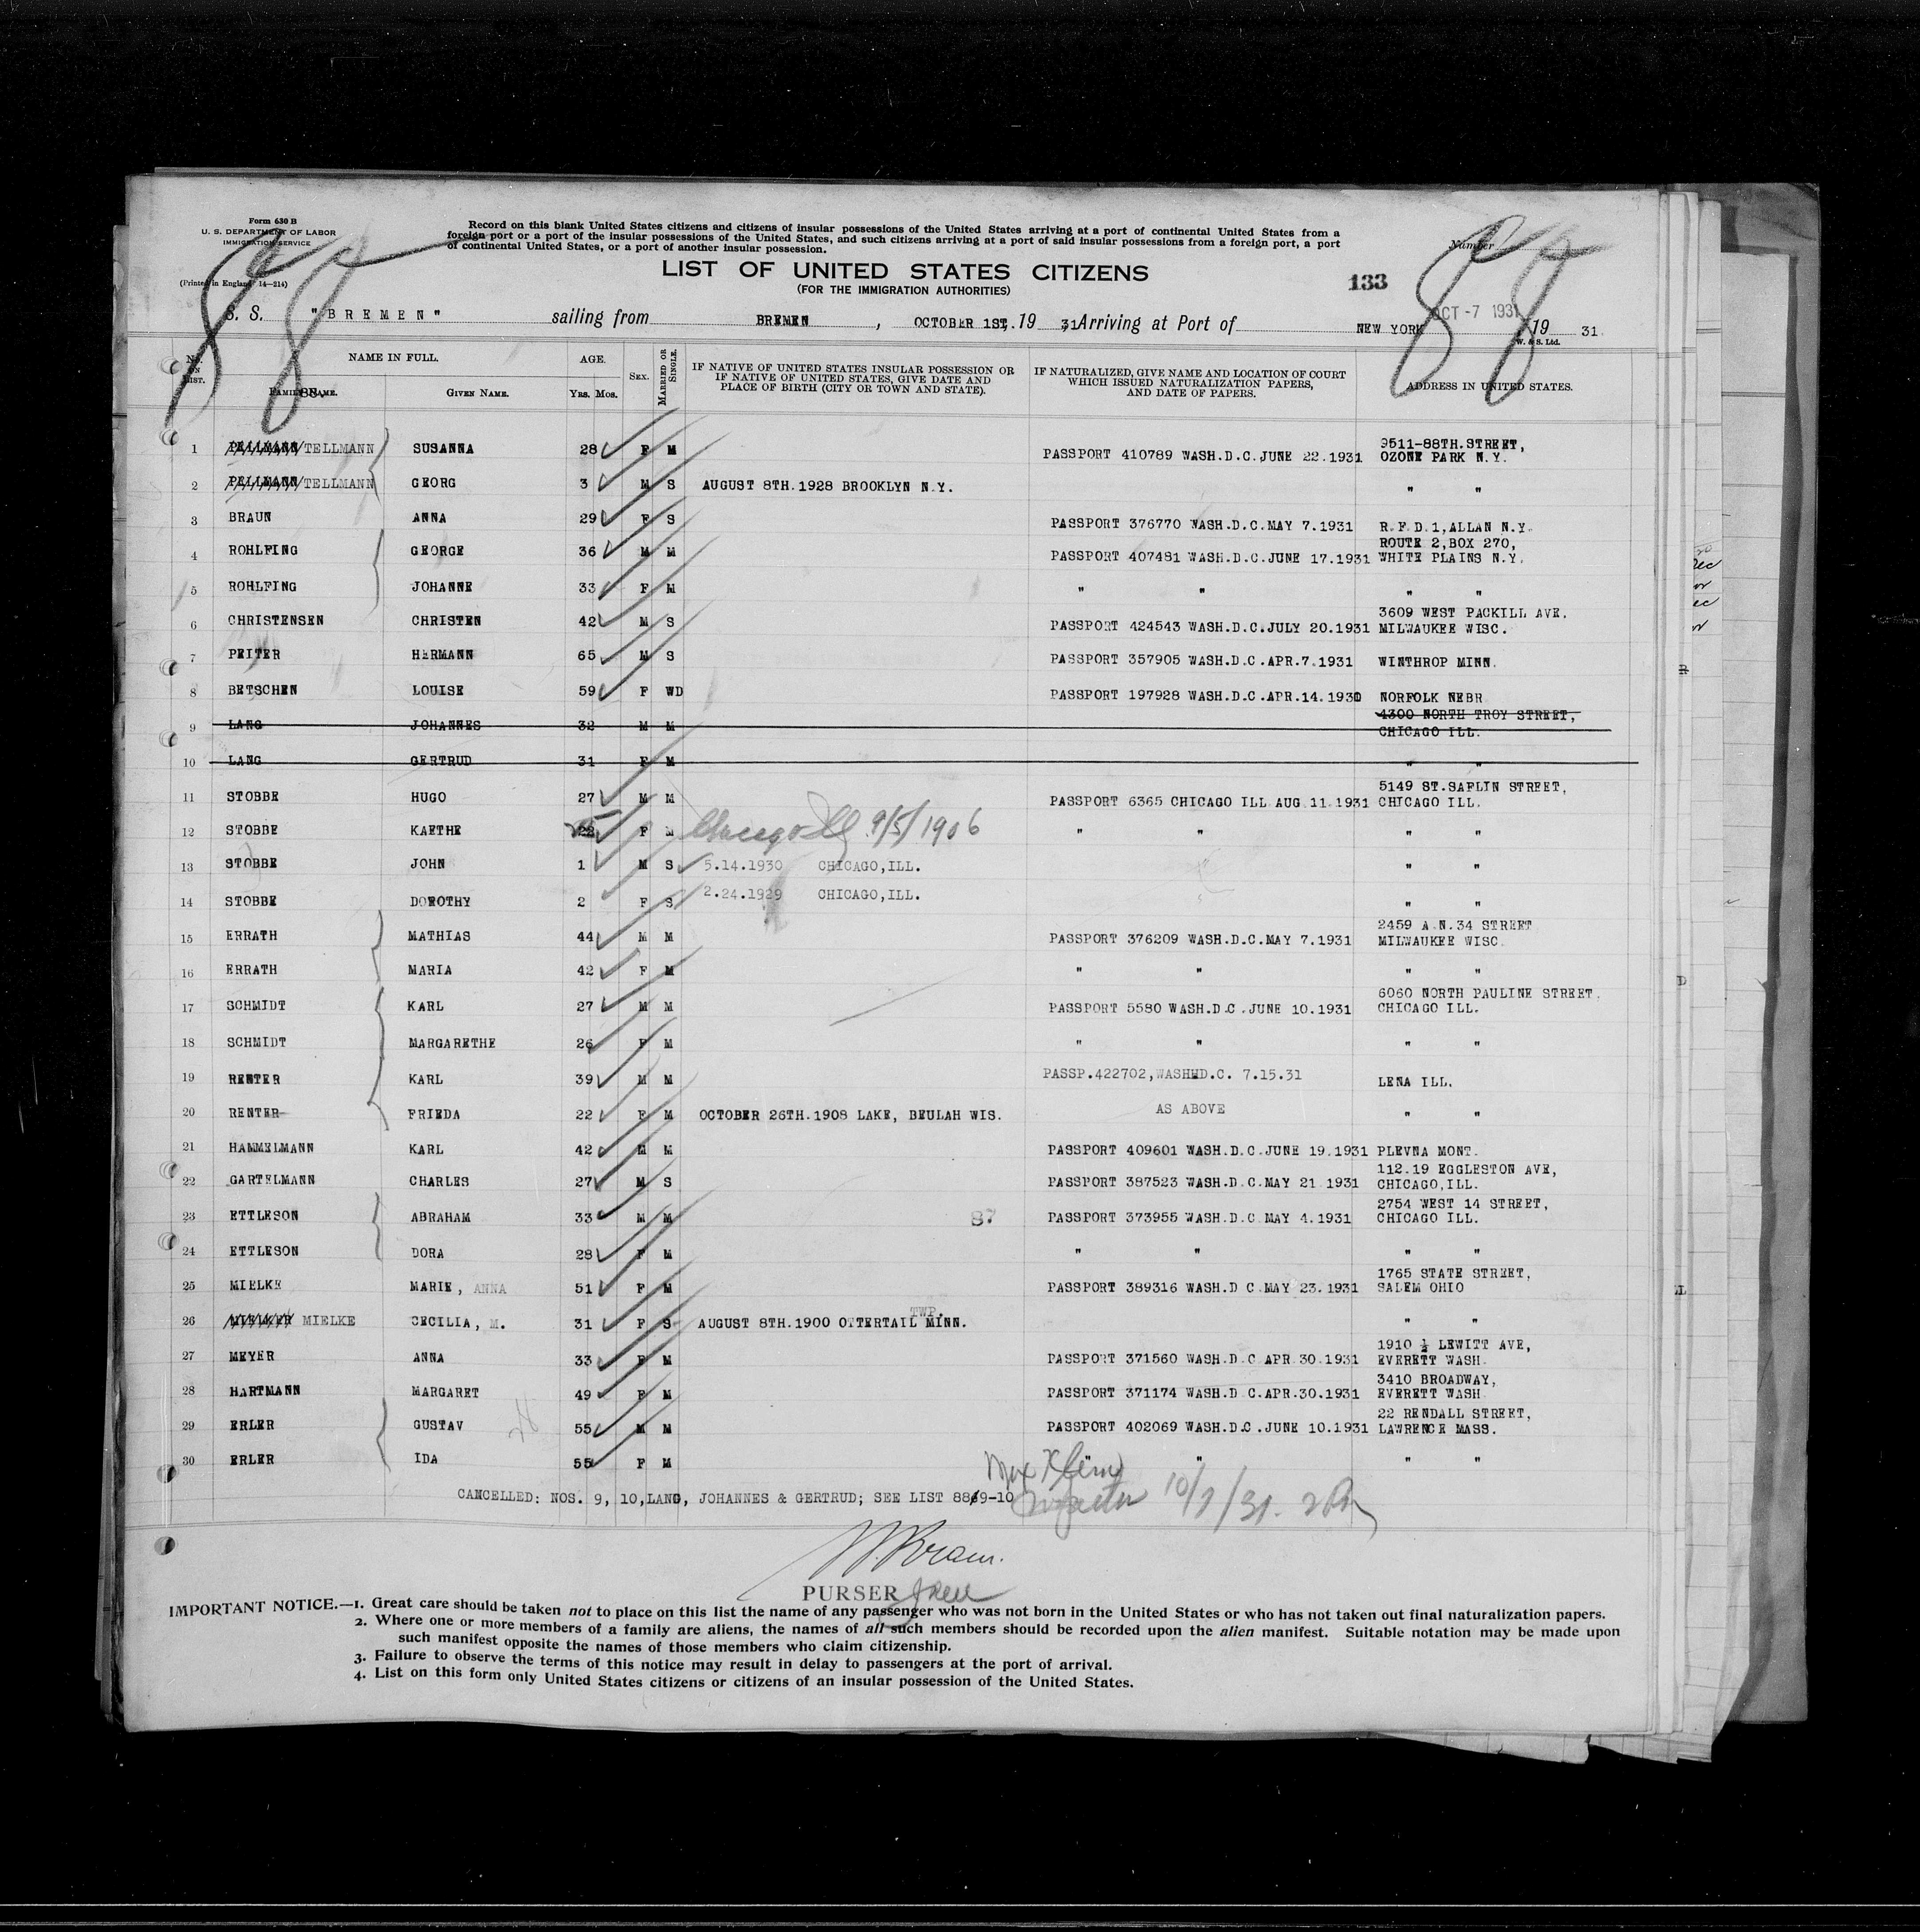 Form 630 B
U. S. DEPARTMENT OF LABOR
IMMIGRATION SERVICE
(Printed in England 14—214)
Record on this blank United States citizens and citizens of insular possessions of the United States arriving at a port of continental United States from a
foreign port or a port of the insular possessions of the United States, and such citizens arriving at a port of said insular possessions from a foreign port, a port
of continental United States, or a port of another insular possession.
Number
88
88
LIST OF UNITED STATES CITIZENS
(FOR THE IMMIGRATION AUTHORITIES)
133
OCT -7 1931
S. S. "BREMEN" sailing from BREMEN, OCTOBER 1ST. 19 31, Arriving at Port of NEW YORK 19 31
W. & S. Ltd.
No. ON LIST. NAME IN FULL. AGE. SEX. MARRIED OR SINGLE. IF NATIVE OF UNITED STATES INSULAR POSSESSION OR IF NATIVE OF UNITED STATES, GIVE DATE AND PLACE OF BIRTH (CITY OR TOWN AND STATE). IF NATURALIZED, GIVE NAME AND LOCATION OF COURT WHICH ISSUED NATURALIZATION PAPERS, AND DATE OF PAPERS. ADDRESS IN UNITED STATES.
FAMILY NAME. 88. GIVEN NAME. YRS. MOS.
1 PELLMANN TELLMANN SUSANNA 28 F M PASSPORT 410789 WASH.D.C.JUNE 22.1931 9511-88TH.STREET, OZONE PARK N.Y.
2 PELLMANN TELLMANN GEORG 3 M S AUGUST 8TH.1928 BROOKLYN N.Y. " "
3 BRAUN ANNA 29 F S PASSPORT 376770 WASH.D.C.MAY 7.1931 R.F.D.1,ALLAN N.Y.
4 ROHLFING GEORGE 36 M M PASSPORT 407481 WASH.D.C.JUNE 17.1931 ROUTE 2,BOX 270, WHITE PLAINS N.Y.
5 ROHLFING JOHANNE 33 F M " " " "
6 CHRISTENSEN CHRISTEN 42 M S PASSPORT 424543 WASH.D.C.JULY 20.1931 3609 WEST PACKILL AVE. MILWAUKEE WISC.
7 PEITER HERMANN 65 M S PASSPORT 357905 WASH.D.C.APR.7.1931 WINTHROP MINN.
8 BETSCHEN LOUISE 59 F WD PASSPORT 197928 WASH.D.C.APR.14.1930 NORFOLK NEBR
9 LANG JOHANNES 32 M M 4300 NORTH TROY STREET, CHICAGO ILL.
10 LANG GERTRUD 31 F M " "
11 STOBBE HUGO 27 M M PASSPORT 6365 CHICAGO ILL AUG.11.1931 5149 ST.SAFLIN STREET, CHICAGO ILL.
12 STOBBE KAETHE 25 F M Chicago Ill 9/5/1906 " " " "
13 STOBBE JOHN 1 M S 5.14.1930 CHICAGO,ILL. " "
14 STOBBE DOROTHY 2 F S 2.24.1929 CHICAGO,ILL. " "
15 ERRATH MATHIAS 44 M M PASSPORT 376209 WASH.D.C.MAY 7.1931 2459 A.N.34 STREET MILWAUKEE WISC.
16 ERRATH MARIA 42 F M " " " "
17 SCHMIDT KARL 27 M M PASSPORT 5580 WASH.D.C.JUNE 10.1931 6060 NORTH PAULINE STREET. CHICAGO ILL.
18 SCHMIDT MARGARETHE 26 F M " " " "
19 RENTER KARL 39 M M PASSP.422702,WASHHD.C. 7.15.31 LENA ILL.
20 RENTER FRIEDA 22 F M OCTOBER 26TH.1908 LAKE, BEULAH WIS. AS ABOVE " "
21 HAMMELMANN KARL 42 M M PASSPORT 409601 WASH.D.C.JUNE 19.1931 PLEVNA MONT.
22 GARTELMANN CHARLES 27 M S PASSPORT 387523 WASH.D.C.MAY 21.1931 112.19 EGGLESTON AVE, CHICAGO,ILL.
23 ETTLESON ABRAHAM 33 M M 87 PASSPORT 373955 WASH.D.C.MAY 4.1931 2754 WEST 14 STREET, CHICAGO ILL.
24 ETTLESON DORA 28 F M " " " "
25 MIELKE MARIE, ANNA 51 F M PASSPORT 389316 WASH.D C.MAY 23.1931 1765 STATE STREET, SALEM OHIO
26 MIELKER MIELKE CECILIA, M. 31 F S AUGUST 8TH.1900 OTTERTAIL TWP. MINN. " "
27 MEYER ANNA 33 F M PASSPORT 371560 WASH.D.C APR.30.1931 1910 ½ LEWITT AVE, EVERETT WASH.
28 HARTMANN MARGARET 49 F M PASSPORT 371174 WASH.D.C.APR.30.1931 3410 BROADWAY, EVERETT WASH
29 ERLER GUSTAV 55 M M PASSPORT 402069 WASH.D.C.JUNE 10.1931 22 RENDALL STREET, LAWRENCE MASS.
30 ERLER IDA 55 F M " " " "
Max Klein
CANCELLED: NOS. 9, 10,LANG, JOHANNES & GERTRUD; SEE LIST 88/9-10
Inspector 10/7/31. 2 PM
PURSER
IMPORTANT NOTICE.—1. Great care should be taken not to place on this list the name of any passenger who was not born in the United States or who has not taken out final naturalization papers.
2. Where one or more members of a family are aliens, the names of all such members should be recorded upon the alien manifest. Suitable notation may be made upon
such manifest opposite the names of those members who claim citizenship.
3. Failure to observe the terms of this notice may result in delay to passengers at the port of arrival.
4. List on this form only United States citizens or citizens of an insular possession of the United States.